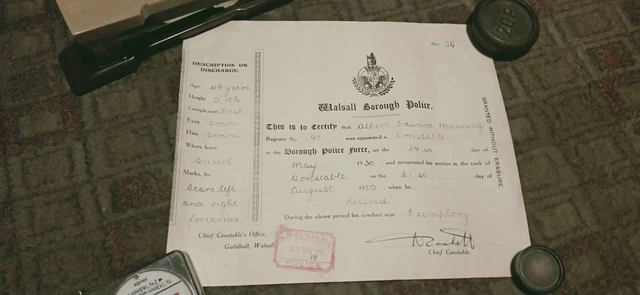 No. 36
DESCRIPTION ON
DISCHARGE.
Age 49 years
Height
Complexion Fresh
Eyes Brown
Hair Brown
Where born
Bristol
Marks, &c.
Scars left
and right
forearms
Walsall Borough Police.
This is to Certify that Albert Edward Manning
Register No. was appointed a Constable
in the Borough Police Force, on the day of
May 1930, and terminated his service in the rank of
Constable on the 21st day of
August when he
During the above period his conduct was Exemplary
Chief Constable.
Chief Constable's Office,
Guildhall, Walsall
WALSALL
19
POLICE
GRANTED WITHOUT ERASURE.